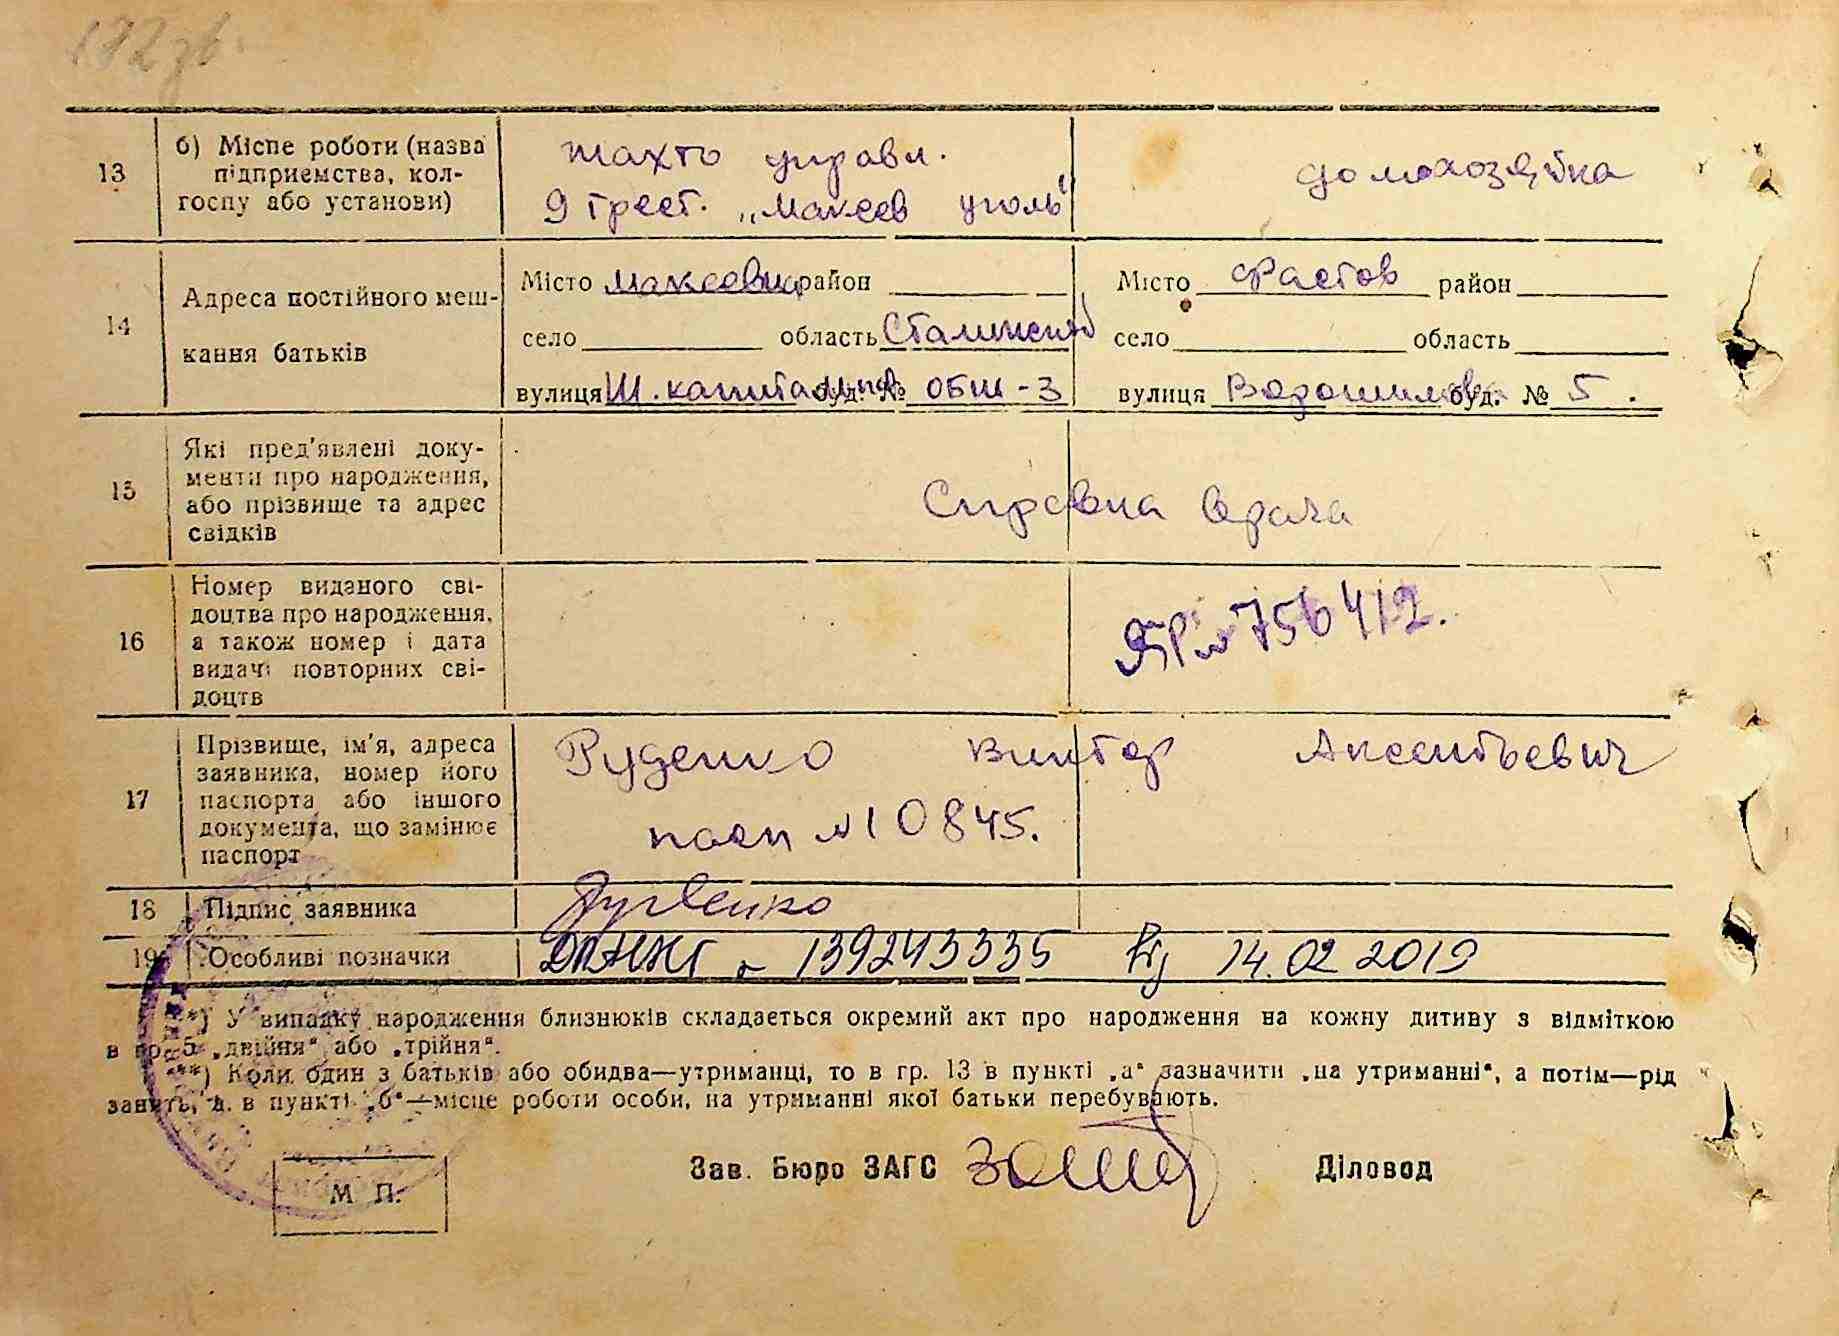 172 зв.
13
б) Місце роботи (назва
підприємства, кол-
госпу або установи)
шахто управл.
9 трест. „Макеев уголь"
домохозяйка
14
Адреса постійного меш-
кання батьків
Місто Макеевка район
село область Сталинской
вулиця Ш. капитальная буд. № ОБЩ-3
Місто Фастов район
село область
вулиця Ворошилова буд. № 5.
15
Які пред'явлені доку-
менти про народження,
або прізвище та адрес
свідків
Справка врача
16
Номер виданого сві-
доцтва про народження,
а також номер і дата
видачі повторних сві-
доцтв
№ 756412.
17
Прізвище, ім'я, адреса
заявника, номер його
паспорта або іншого
документа, що замінює
паспорт
Руденко Виктор Аксентьевич
пасп № 10845.
18
Підпис заявника
Руденко
19
Особливі позначки
139243335 14.02 2019
*) У випадку народження близнюків складається окремий акт про народження на кожну дитину з відміткою
в гр. 5 „двійня“ або „трійня“.
**) Коли один з батьків або обидва—утриманці, то в гр. 13 в пункті „а“ зазначити „на утриманні“, а потім—рід
занять, а в пункті „б“—місце роботи особи, на утриманні якої батьки перебувають.
Зав. Бюро ЗАГС
Діловод
М П.